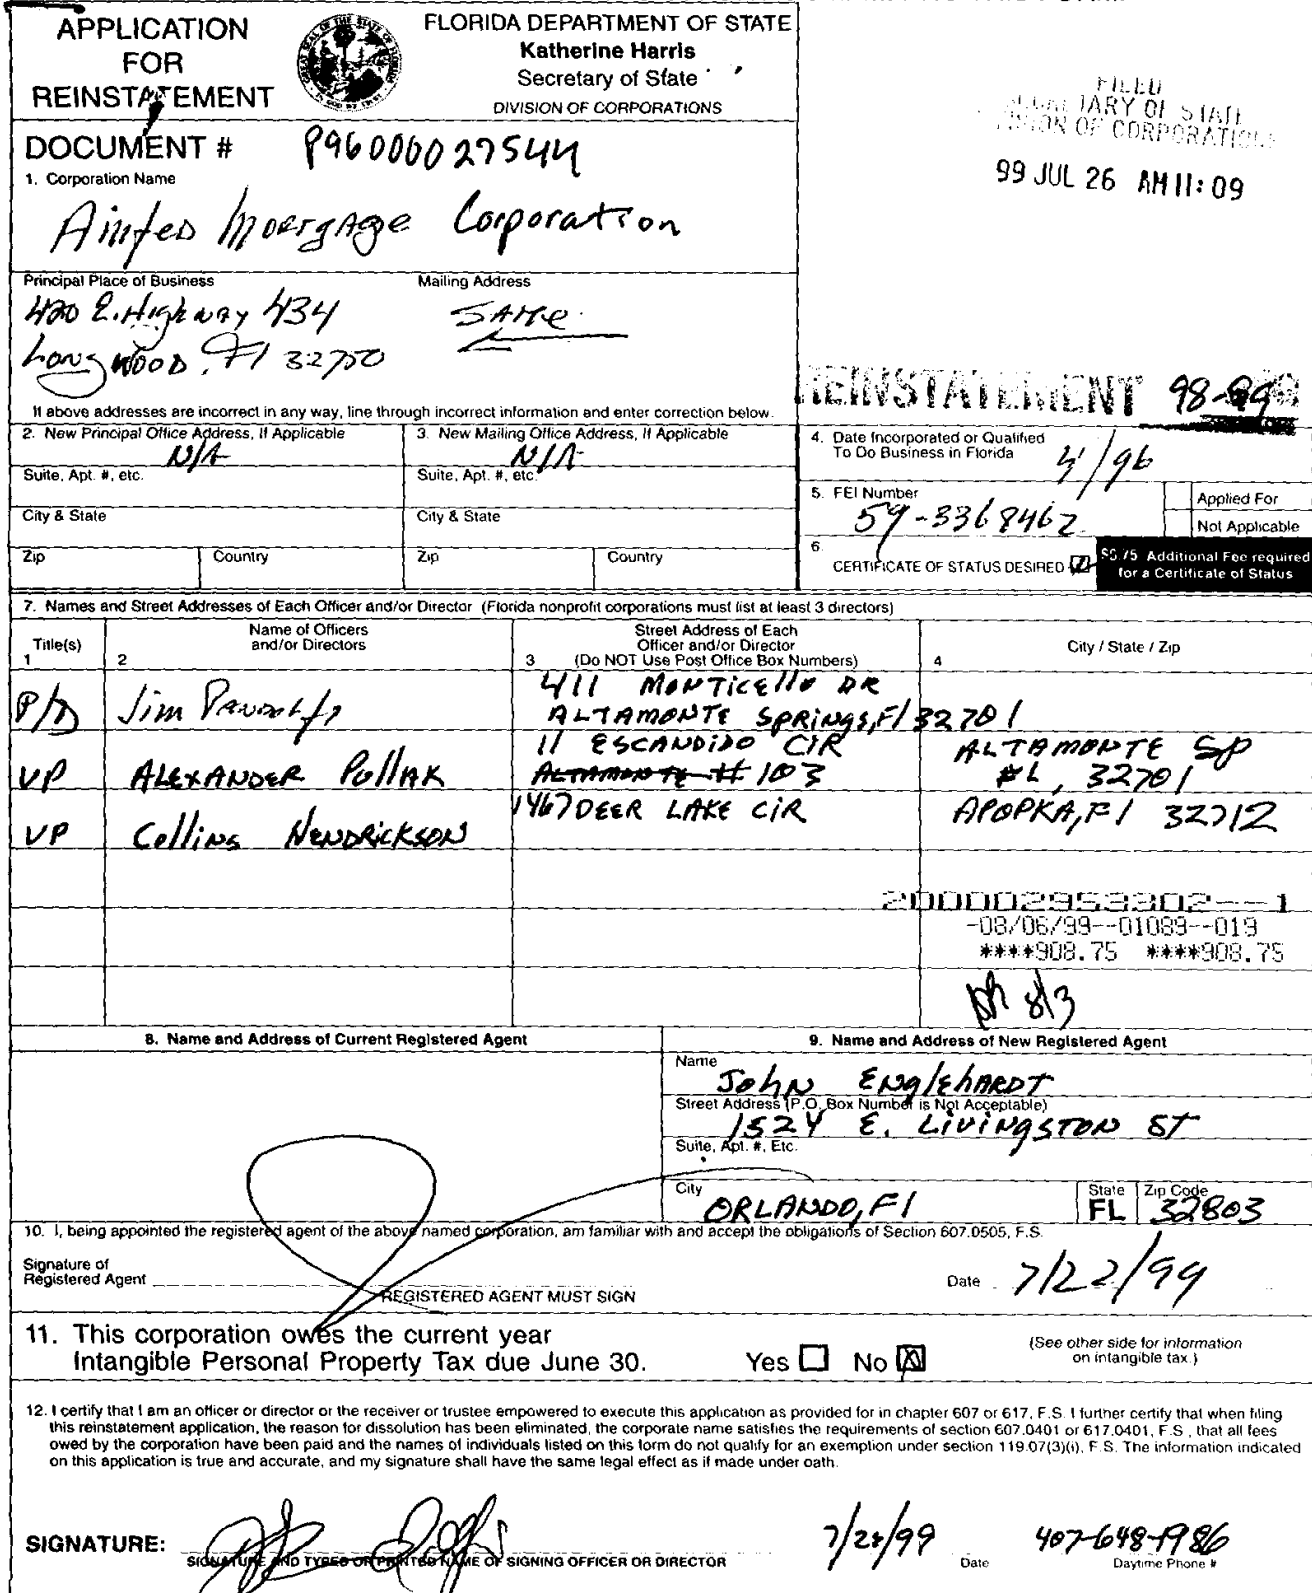 APPLICATION
FOR
REINSTATEMENT
FLORIDA DEPARTMENT OF STATE
Katherine Harris
Secretary of State
DIVISION OF CORPORATIONS
FILED
SECRETARY OF STATE
DIVISION OF CORPORATIONS
99 JUL 26 AM 11:09
DOCUMENT # P96000027544
1. Corporation Name
Mortgage Corporation
Principal Place of Business
Mailing Address
420 E. Highway 434
SAME
Longwood, Fl 32750
REINSTATEMENT 98-99
If above addresses are incorrect in any way, line through incorrect information and enter correction below.
2. New Principal Office Address, If Applicable
N/A
3. New Mailing Office Address, If Applicable
N/A
4. Date Incorporated or Qualified
To Do Business in Florida 4/96
Suite, Apt. #, etc.
Suite, Apt. #, etc.
5. FEI Number
59-3368462
Applied For
Not Applicable
City & State
City & State
Zip
Country
Zip
Country
6.
CERTIFICATE OF STATUS DESIRED
$8.75 Additional Fee required
for a Certificate of Status
7. Names and Street Addresses of Each Officer and/or Director (Florida nonprofit corporations must list at least 3 directors)
Title(s)
1
Name of Officers
and/or Directors
2
Street Address of Each
Officer and/or Director
3 (Do NOT Use Post Office Box Numbers)
City / State / Zip
4
P/D Jim Pandolfi 411 MONTICEllo DR
ALTAMONTE SPRINGS, Fl 32701
VP ALEXANDER Pollak 11 ESCANDIDO CIR
ALTAMONTE # 103
ALTAMONTE SP
FL, 32701
VP Collins HENDRICKSON 1467 DEER LAKE CIR APOPKA, Fl 32712
200002953302---1
-08/06/99--01089--019
****908.75 ****908.75
8/3
8. Name and Address of Current Registered Agent
9. Name and Address of New Registered Agent
Name
John EnglehARDT
Street Address (P.O. Box Number is Not Acceptable)
1524 E. LIVINGSTON ST
Suite, Apt. #, Etc.
City
ORLANDO, Fl
State
FL
Zip Code
32803
10. I, being appointed the registered agent of the above named corporation, am familiar with and accept the obligations of Section 607.0505, F.S.
Signature of
Registered Agent
REGISTERED AGENT MUST SIGN
Date 7/22/99
11. This corporation owes the current year
Intangible Personal Property Tax due June 30. Yes No
(See other side for information
on intangible tax.)
12. I certify that I am an officer or director or the receiver or trustee empowered to execute this application as provided for in chapter 607 or 617, F.S. I further certify that when filing
this reinstatement application, the reason for dissolution has been eliminated, the corporate name satisfies the requirements of section 607.0401 or 617.0401, F.S., that all fees
owed by the corporation have been paid and the names of individuals listed on this form do not qualify for an exemption under section 119.07(3)(i), F.S. The information indicated
on this application is true and accurate, and my signature shall have the same legal effect as if made under oath.
SIGNATURE:
SIGNATURE AND TYPED OR PRINTED NAME OF SIGNING OFFICER OR DIRECTOR
7/22/99
Date
407-648-1986
Daytime Phone #